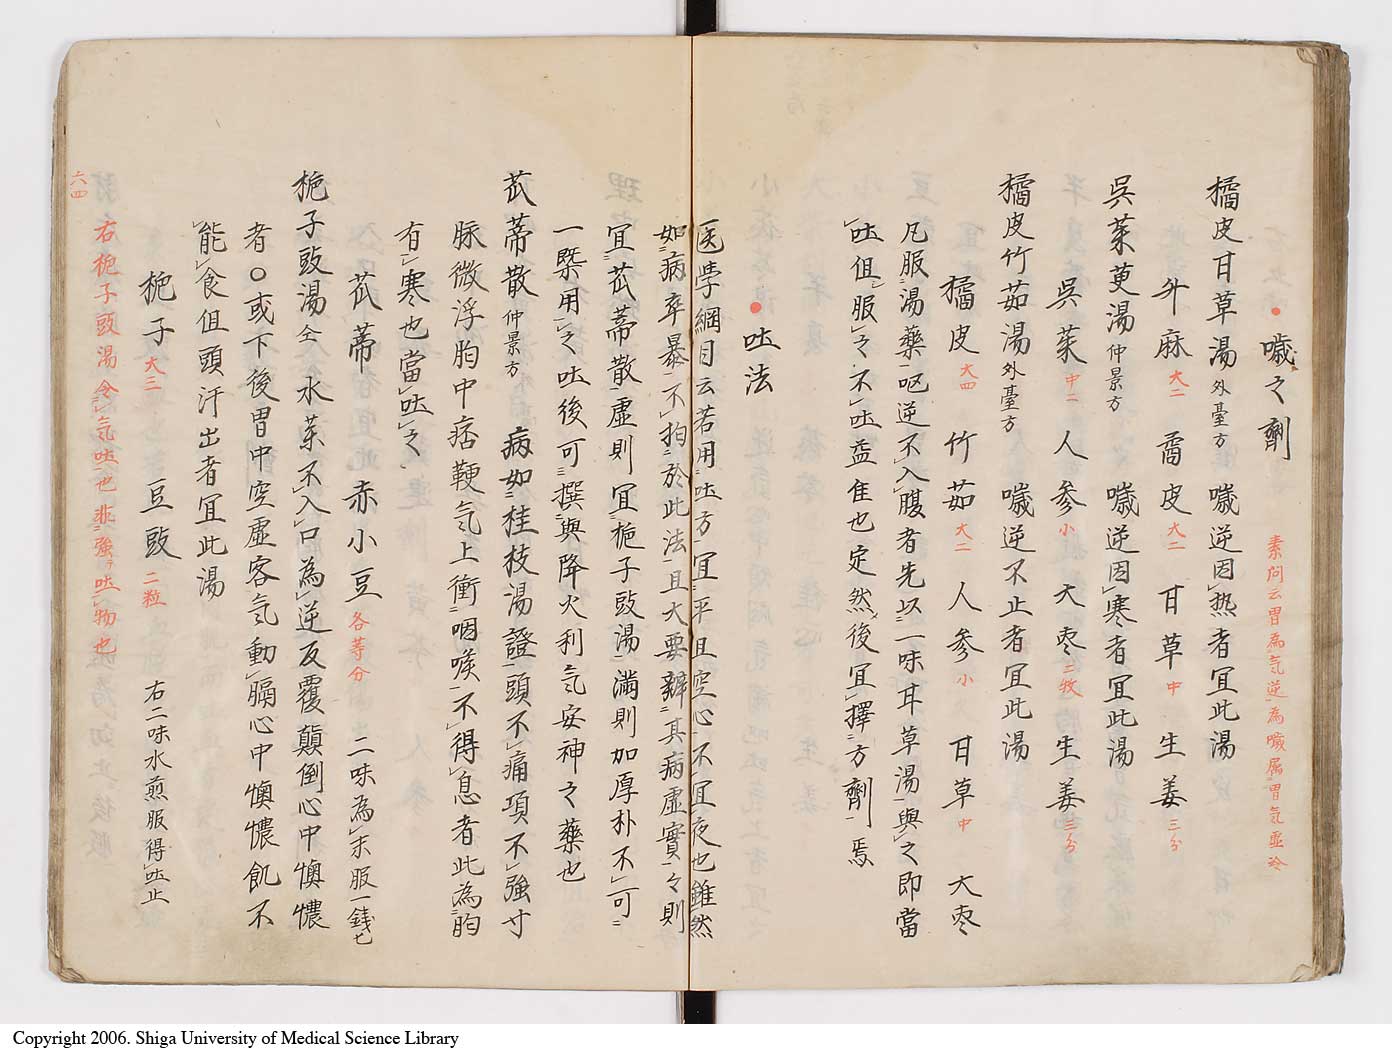 噦之劑
素问云胃為氣逆為噦属胃氣虚冷
橘皮甘草湯外臺方　噦逆因熱者宜此湯
升麻大二　喬皮大二　甘草中　生姜三分
呉茱萸湯仲景方　噦逆因寒者宜此湯
呉茱中二　人参小　大枣二枚　生姜三分
橘皮竹茹湯外臺方　噦逆不止者宜此湯
橘皮大四　竹茹大二　人参小　甘草中　大枣
凡服湯藥呕逆不入腹者先以一味耳草湯與之即當
吐但服之不吐益佳也定然後宜擇方劑焉
吐法
医学綱目云若用吐方宜平旦空心不宜夜也雖然
如病卒暴不拍於此法且大要辨其病虚實々則
宜苽蒂散虚則宜梔子豉湯満則加厚朴不可
一槩用之吐後可撰與降火利気安神之藥也
苽蒂散仲景方　病如桂枝湯證頭不痛項不強寸
脉微浮胸中痞鞕気上衝咽喉不得息者此為胸
有寒也當吐之
苽蒂　赤小豆各等分　二味為末服一銭匕
梔子豉湯仝　水薬不入口為逆反覆顛倒心中懊憹
者○或下後胃中空虚客気動膈心中懊憹飢不
能食但頭汗出者宜此湯
梔子大三　豆豉二粒　右二味水煎服得吐止
右梔子豉湯令気吐也非強吐物也
六四
Copyright 2006. Shiga University of Medical Science Library